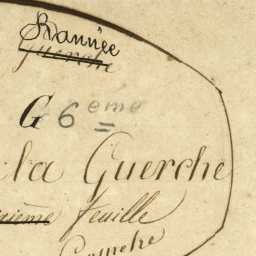 Bannée
Guerche
G 6ème
la Guerche
ième feuille